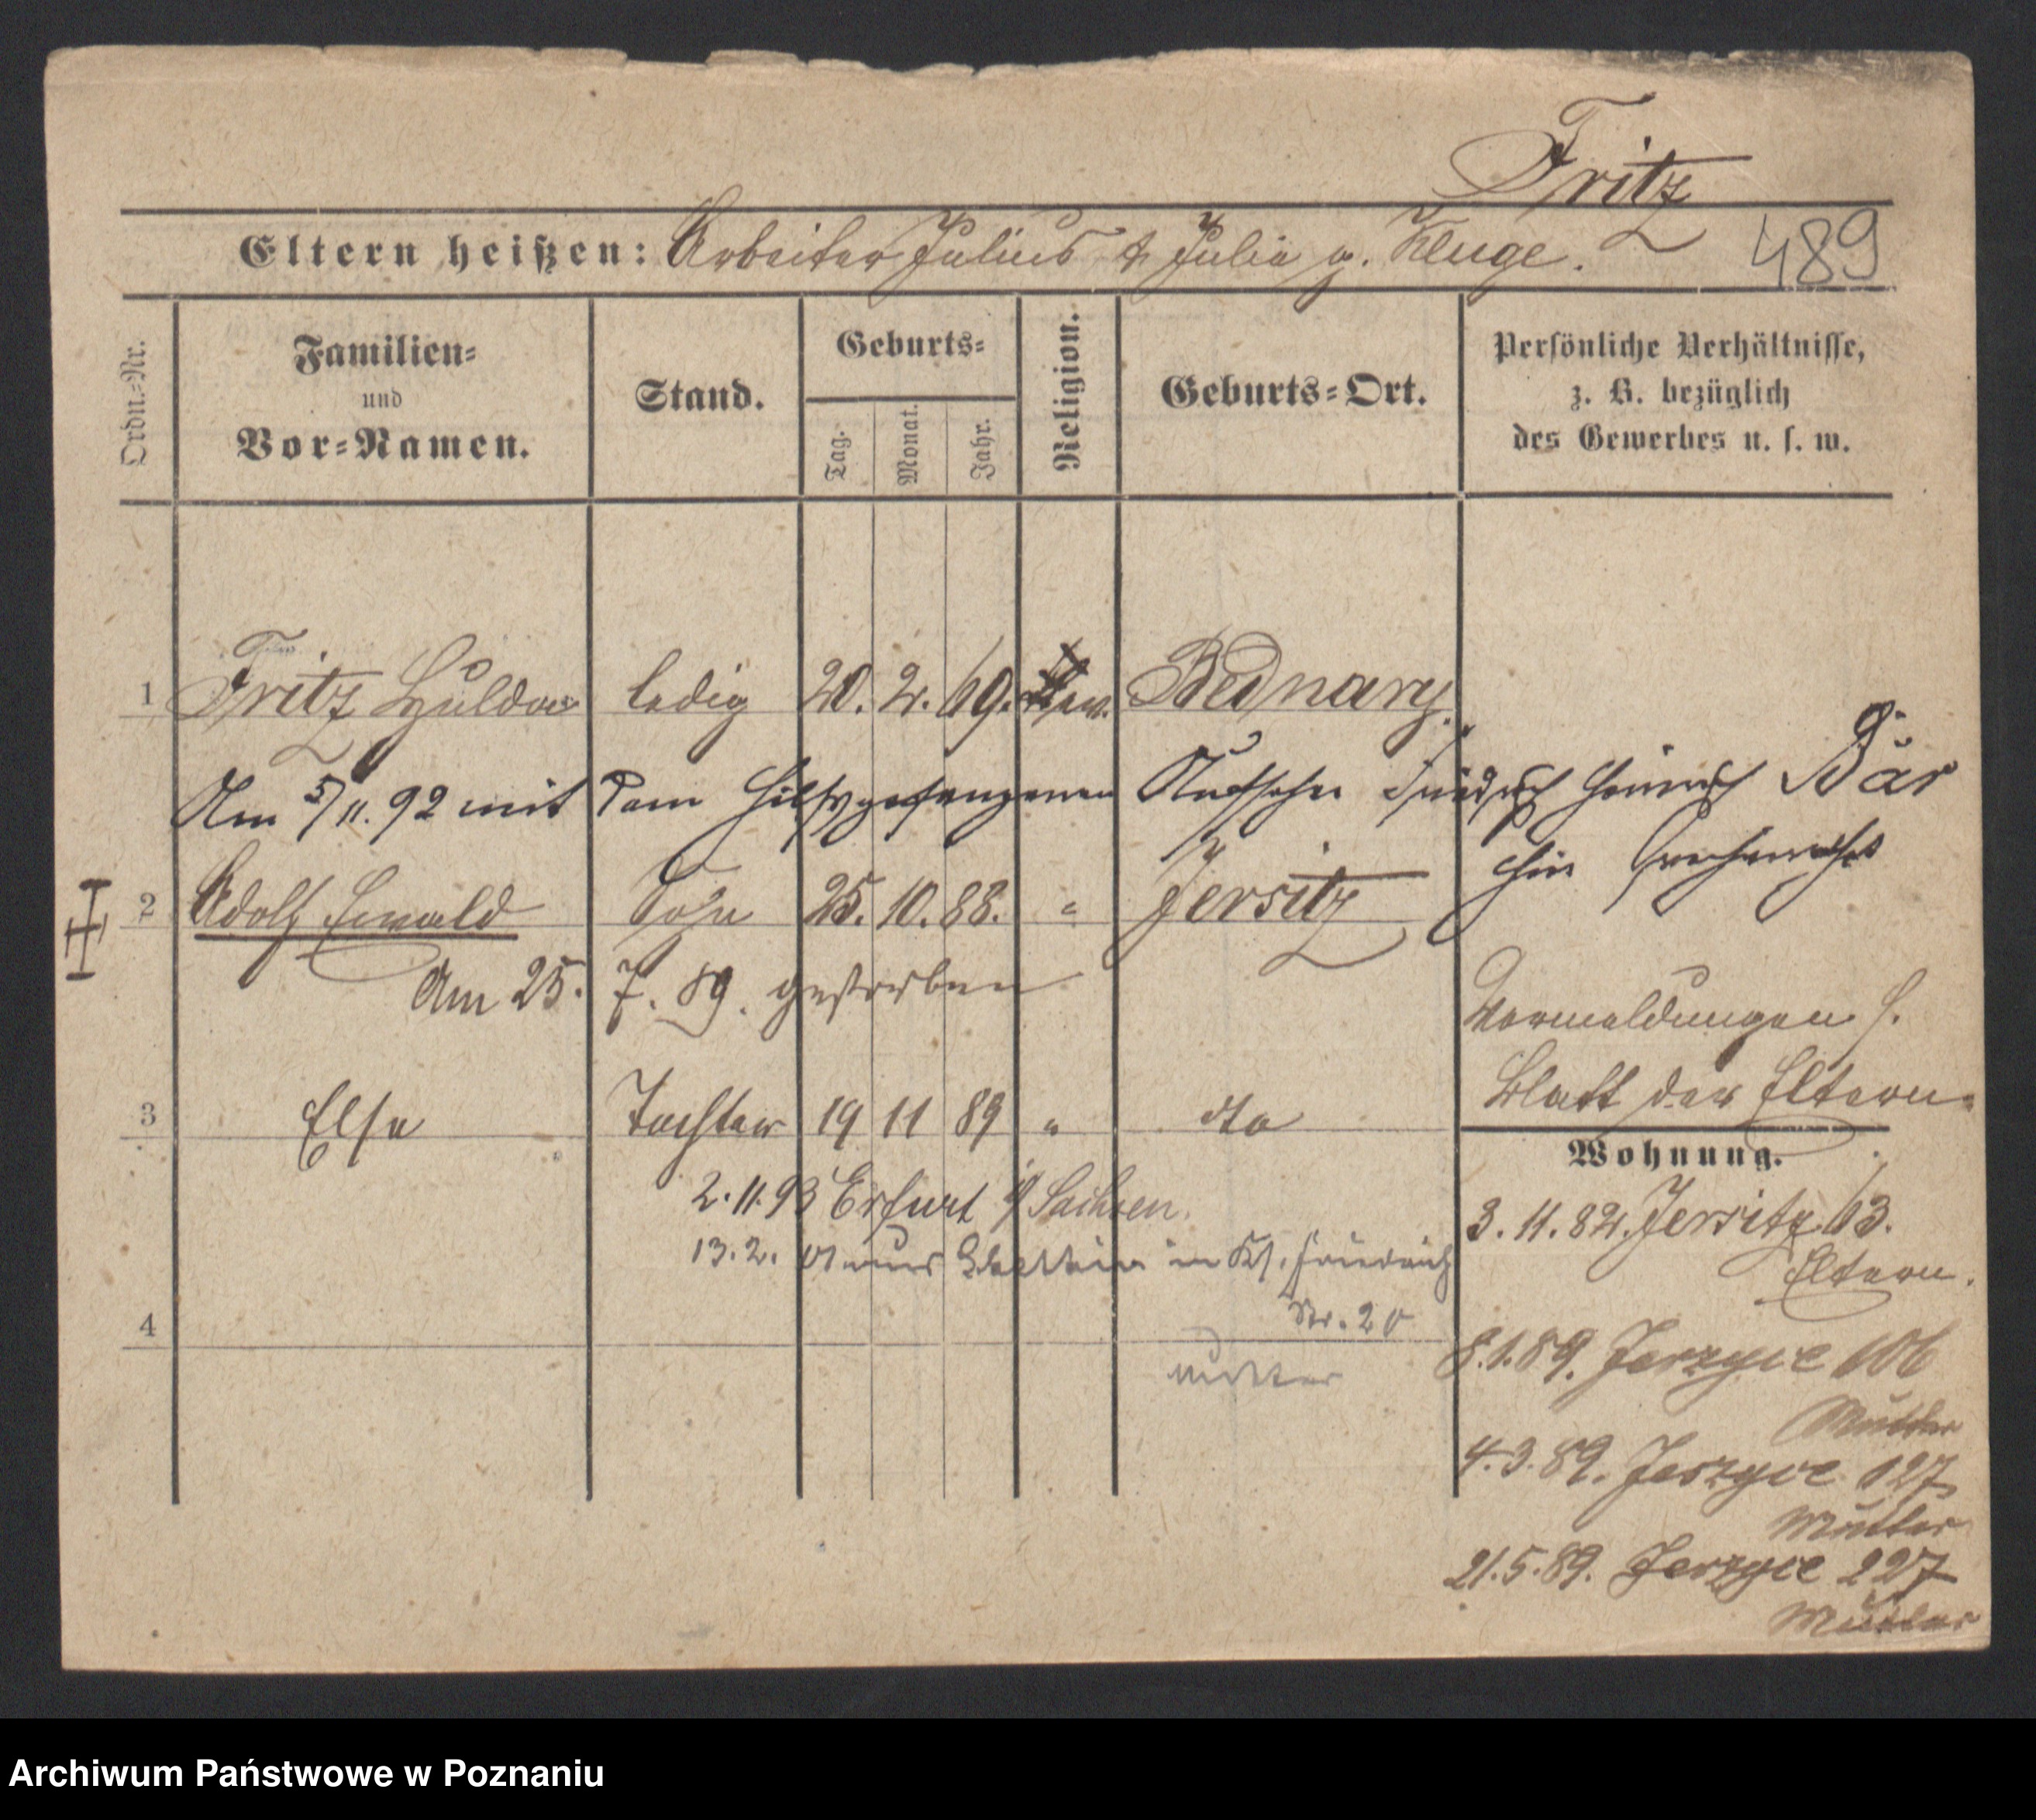 Fritz
Eltern heißen: Arbeiter Julius & Julia g. Kluge.
489
Ordn.-Nr.
Familien- und Vor-Namen.
Stand.
Geburts-
Tag. Monat. Jahr.
Religion.
Geburts-Ort.
Persönliche Verhältnisse,
z. B. bezüglich
des Gewerbes u. s. w.
1 Fritz Hulda ledig 20. 2. 69. ev. Bednary
Am 5/11. 92 mit dem Hilfsgefangenen Aufseher Friedrich Heinrich Bär
hier
2 Adolf Ewald Sohn 25. 10. 88. " Jersitz
Am 25. 7. 89. gestorben
Vormeldungen s.
Blatt der Eltern.
3 Else Tochter 19 11 89 " dto
2. 11. 93 Erfurt i/ Sachsen.
13. 2. in Kl. Friedrich
Str. 20
4
Mutter
Wohnung.
3. 11. 82. Jersitz 63.
Eltern.
8. 1. 89. Jerzyce 106
Mutter
4. 3. 89. Jerzyce 127
Mutter
21. 5. 89. Jerzyce 227
Mutter
Archiwum Państwowe w Poznaniu